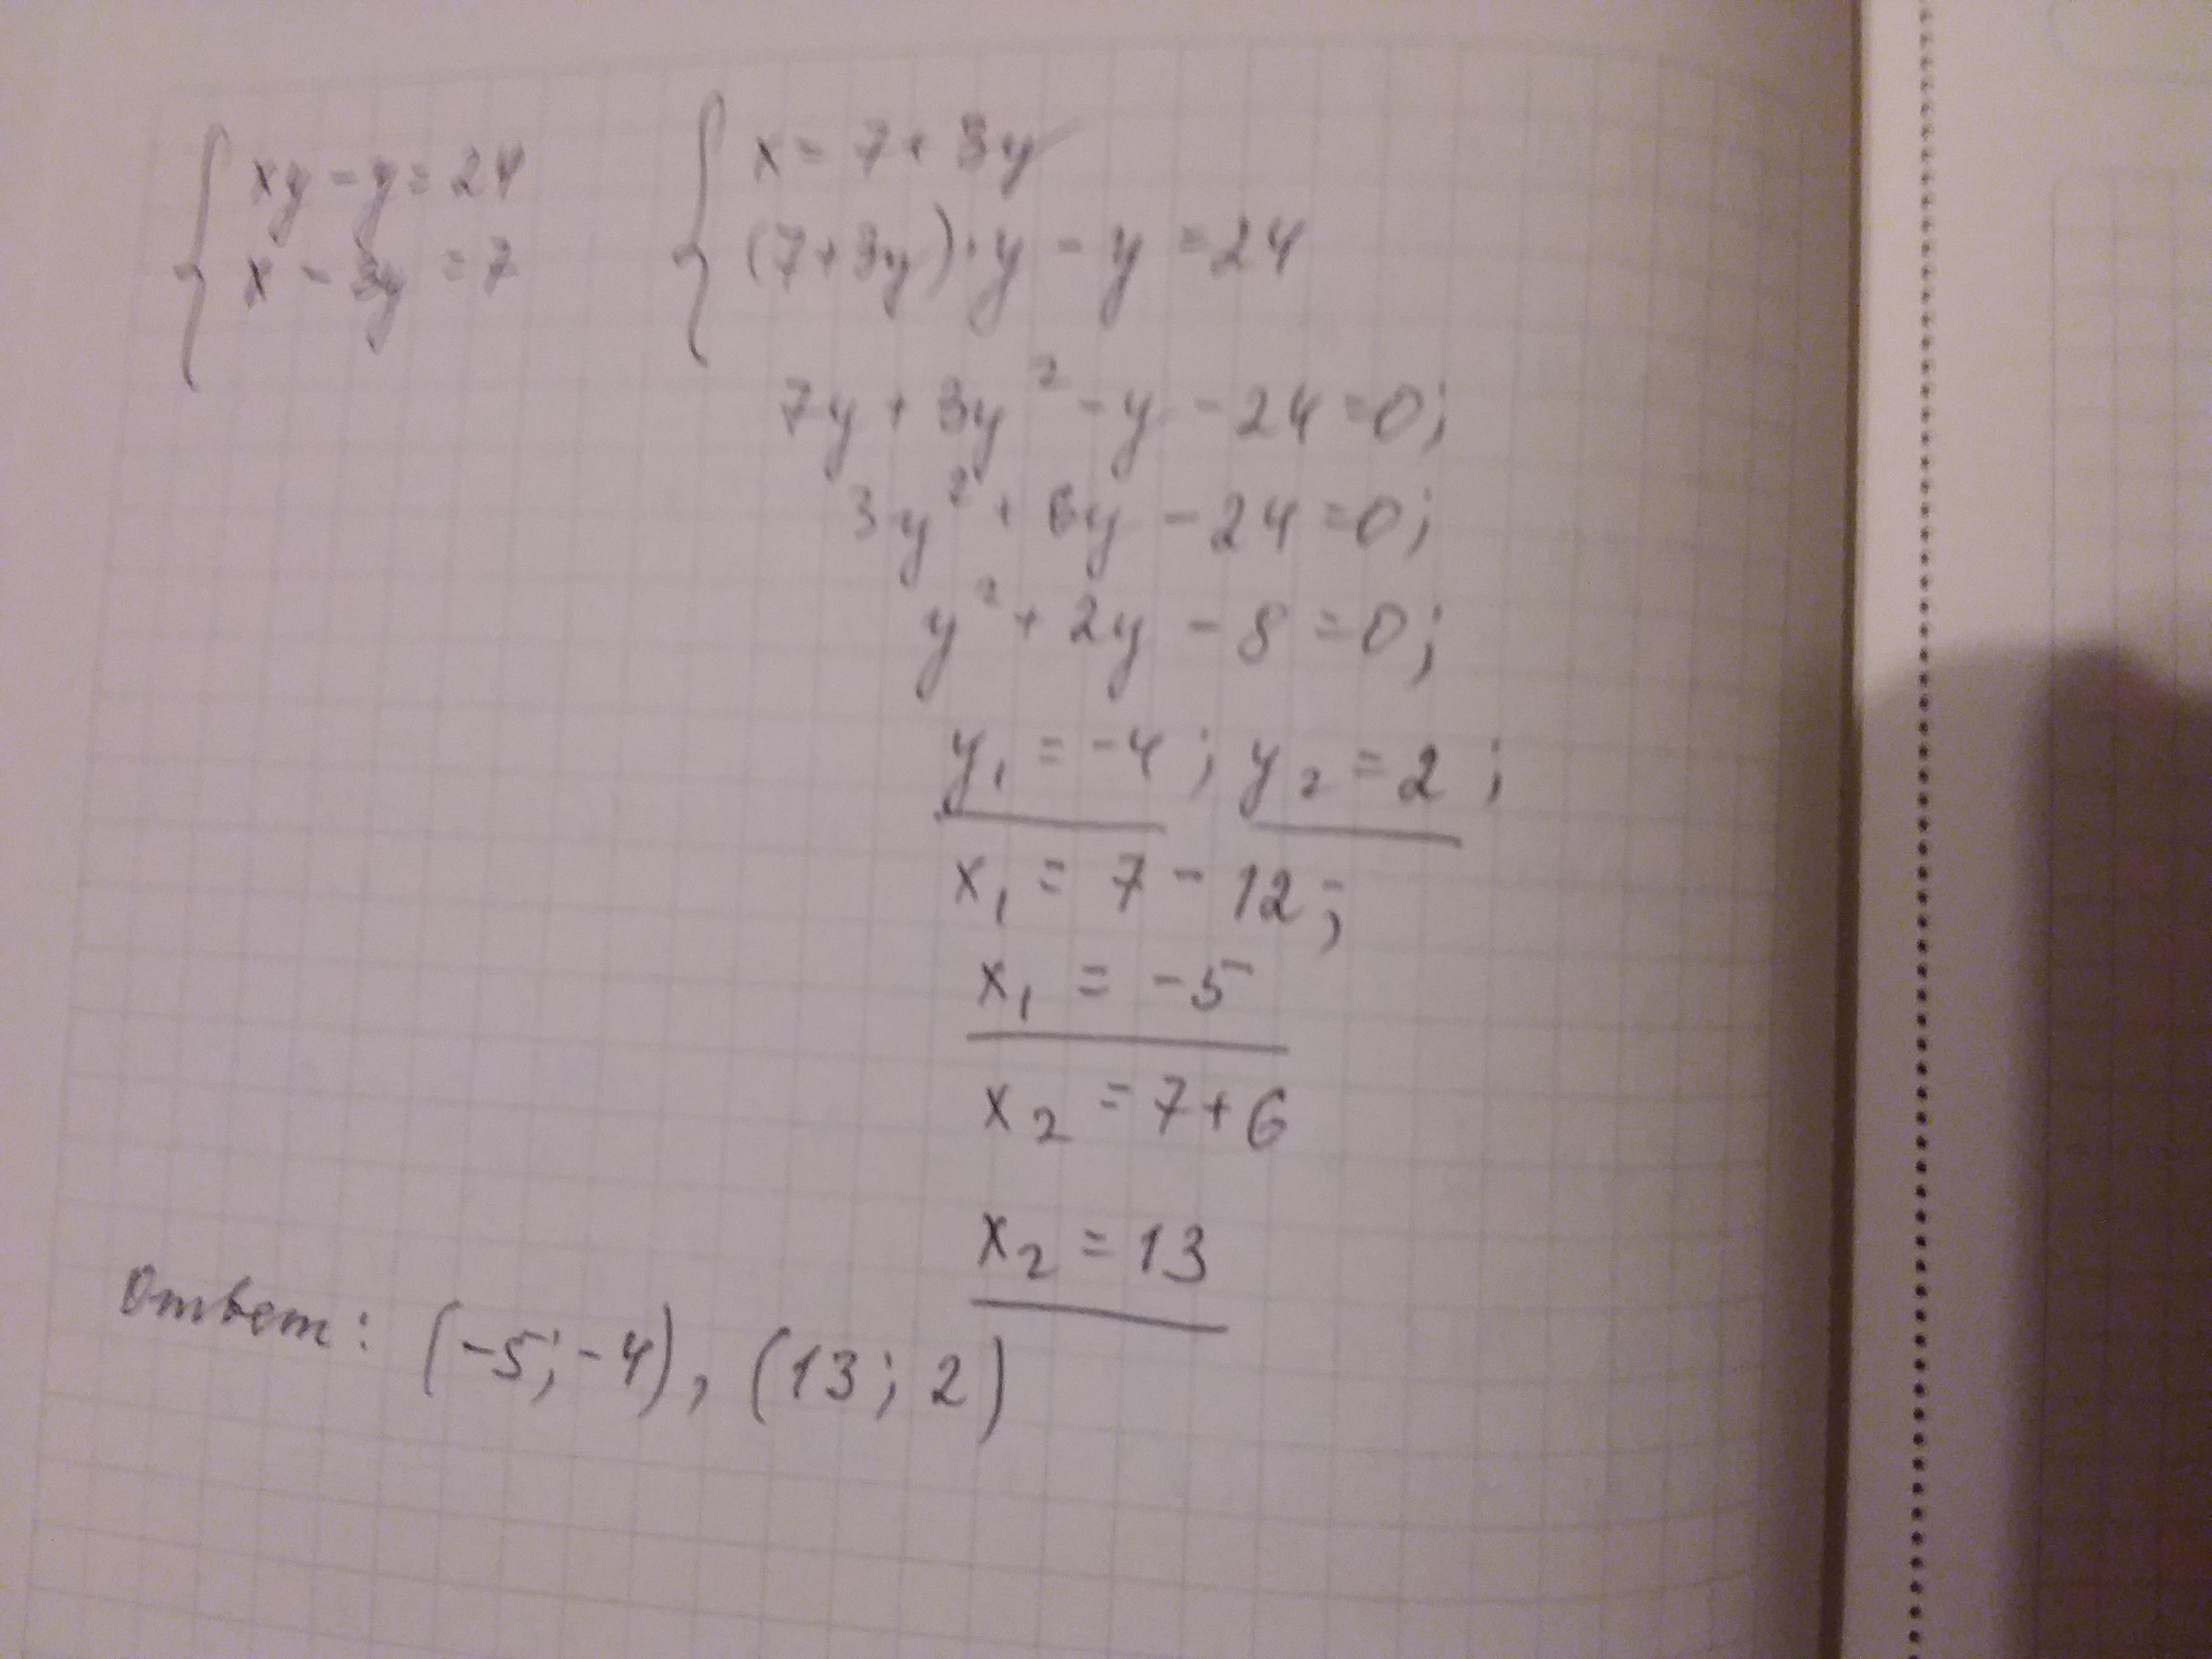 xy - y = 24
x - 3y = 7
x = 7 + 3y
(7+3y)·y - y = 24
7y + 3y² - y - 24 = 0;
3y² + 6y - 24 = 0;
y² + 2y - 8 = 0;
y₁ = -4; y₂ = 2;
x₁ = 7 - 12;
x₁ = -5
x₂ = 7 + 6
x₂ = 13
Ответ: (-5; -4), (13; 2)